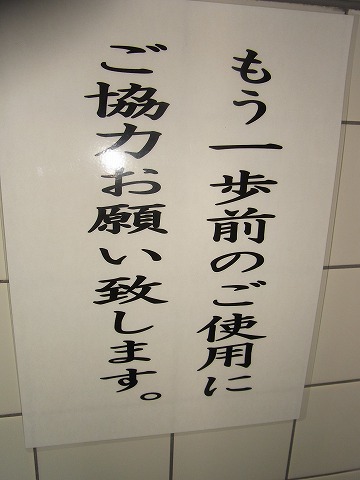 もう一歩前のご使用に
ご協力お願い致します。